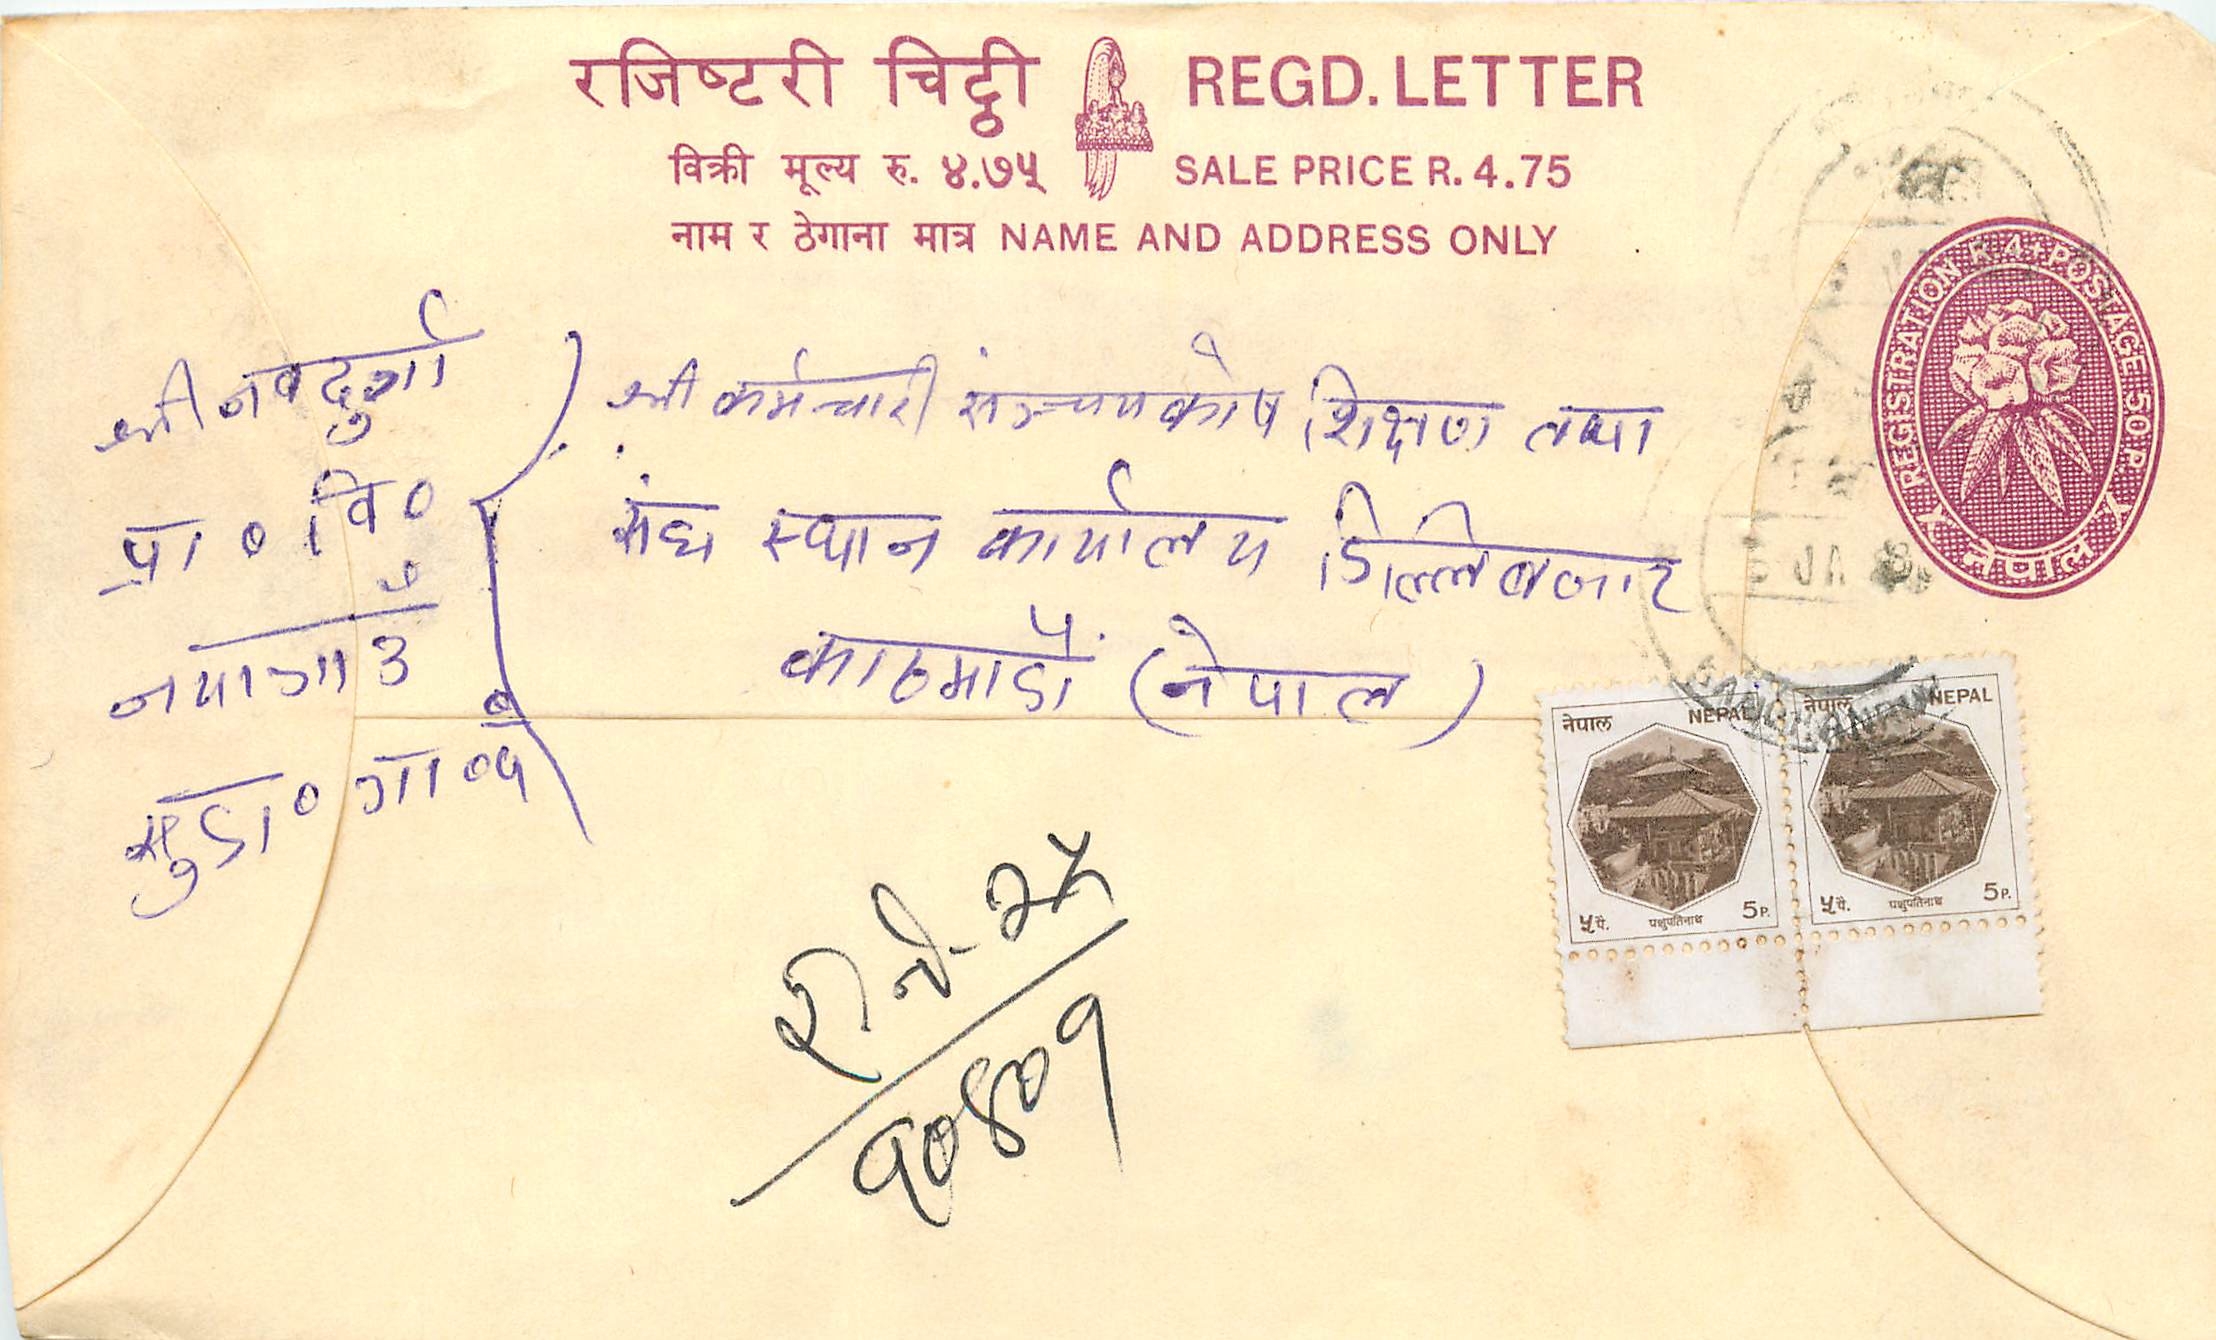 रजिष्टरी चिट्ठी REGD. LETTER
विक्री मूल्य रु. ४.७५ SALE PRICE R. 4.75
नाम र ठेगाना मात्र NAME AND ADDRESS ONLY
REGISTRATION R 4 + POSTAGE 50 P.
नेपाल
श्री नवदुर्गा
प्रा०वि०
नयागाउँ
मुडा०गा०प
श्री कर्मचारी संञ्चयकोष शिक्षण तथा
संघ स्थान कार्यालय डिल्लिबजार
काठमाडौं (नेपाल)
नेपाल NEPAL
५ पै. पशुपतिनाथ 5 P.
नेपाल NEPAL
५ पै. पशुपतिनाथ 5 P.
१०४०१